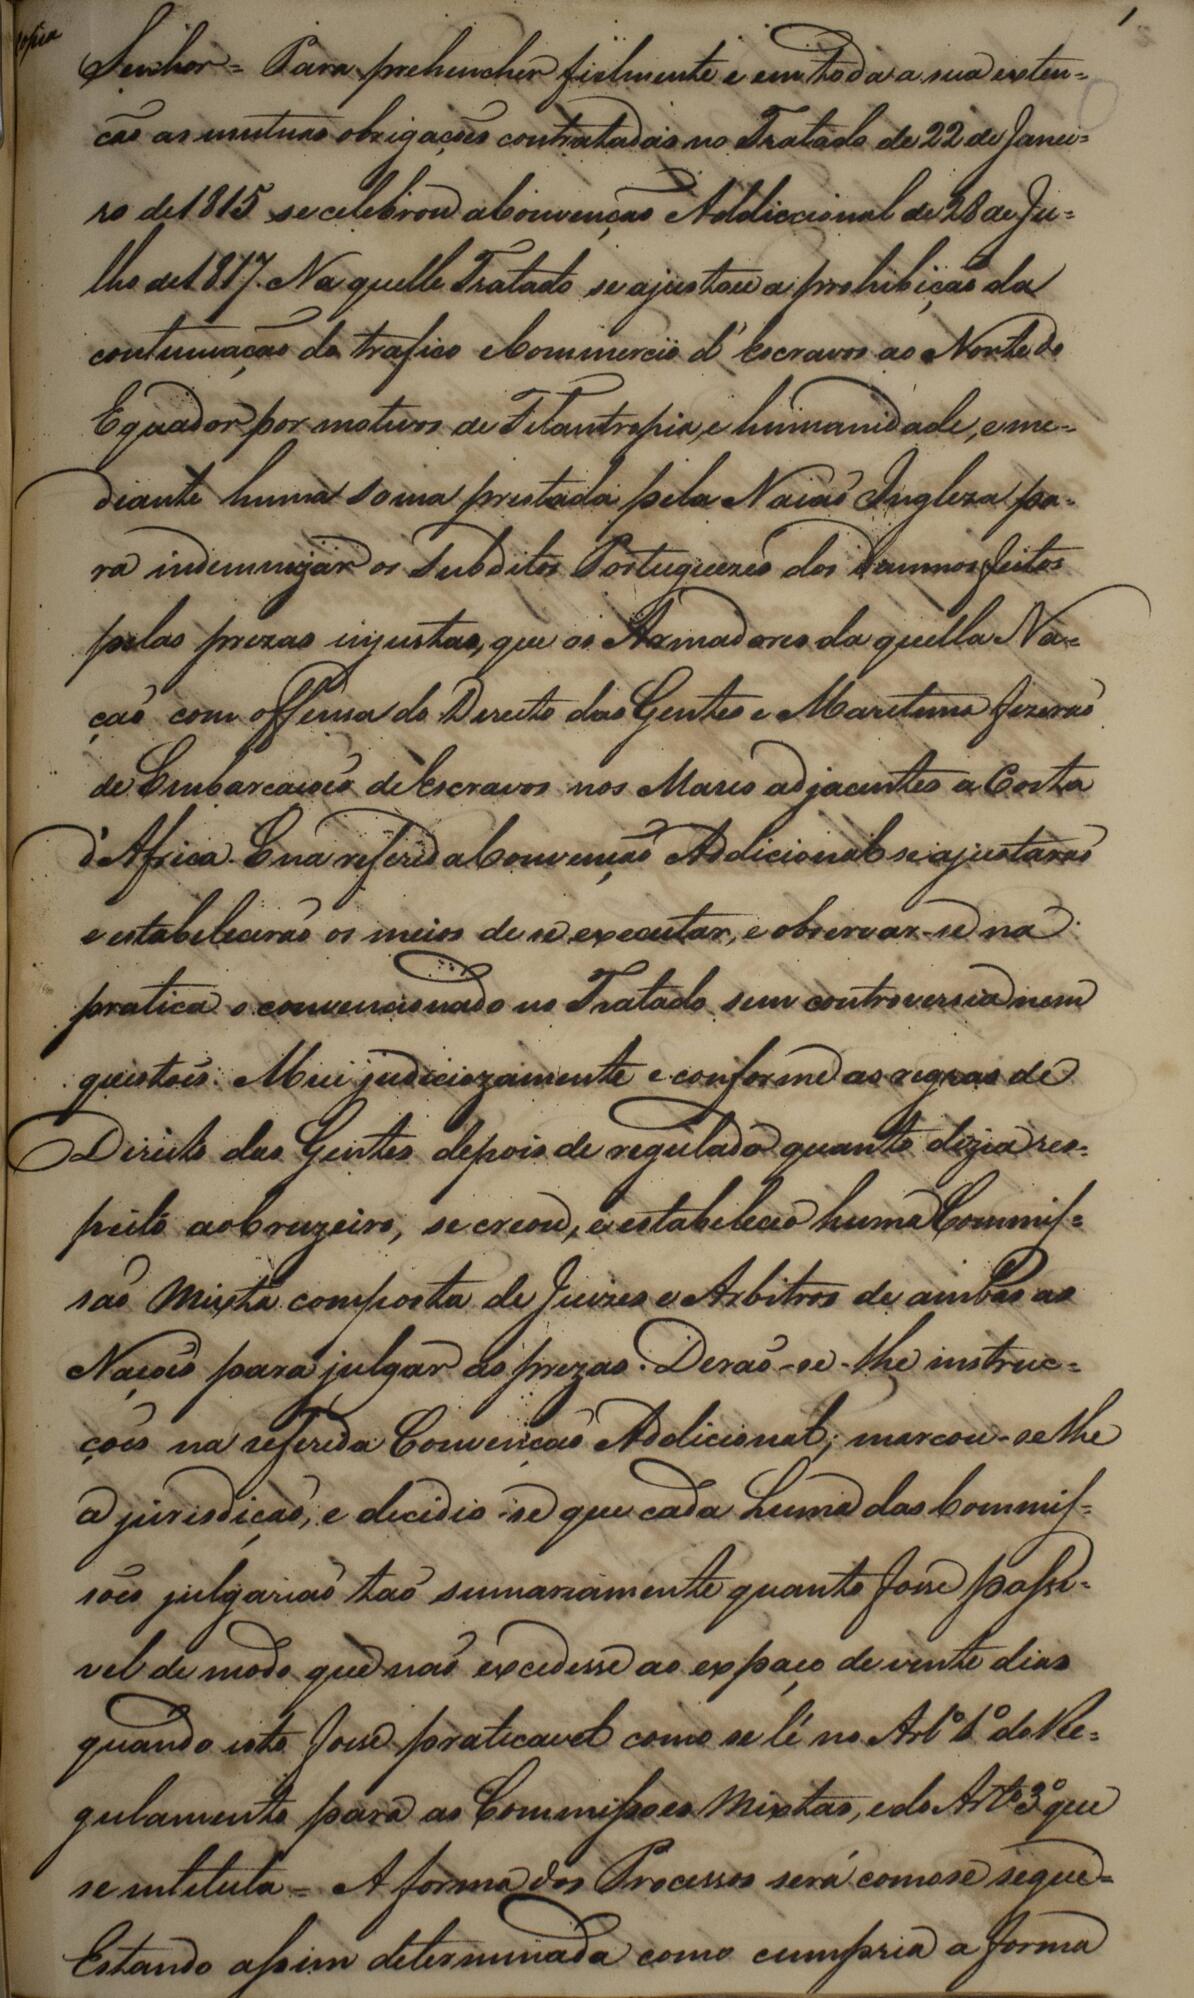 Copia
1
Senhor = Para prehencher fielmente e em toda a sua exten=
ção as mutuas obrigações contratadas no Tratado de 22 de Janei=
ro de 1815 se celebrou a Convenção Addiccional de 28 de Ju=
lho de 1817. Naquelle Tratado se ajustou a prohibição da
continuação do trafico e Commercio d'Escravos ao Norte do
Equador por motivos de Filantropia, e humanidade, e me=
diante huma soma prestada pela Nação Ingleza pa=
ra indemnizar os Subditos Portuguezes dos Damnos feitos
pelas prezas injustas, que os Armadores da quella Na=
ção com offensa do Direito das Gentes e Maritimo fizerão
de Embarcações de Escravos nos Mares adjacentes a Costa
d'Africa. E na referida Convenção Addicional se ajustarão
e estabelecerão os meios de se executar, e observar-se na
pratica o convencionado no Tratado sem controversia nem
questões. Mui judiciozamente e conforme as regras de
Direito das Gentes depois de regulado quanto dizia res=
peito ao Cruzeiro, se creou, e estabeleceo huma Commis=
são Mixta composta de Juizes e Arbitros de ambas as
Nações para julgar as prezas. Derão-se-lhe instruc=
ções na referida Convenção Addicional; marcou-se lhe
a jurisdição, e decidio-se que cada huma das Commis=
sões julgarião tão sumariamente quanto fosse possi=
vel de modo que não excedesse ao expaço de vinte dias
quando isto fosse praticavel como se lê no Artº 1º do Re=
gulamento para as Commissões Mixtas, e do Artº 3º que
se intitula = A forma dos Processos será como se segue =
Estando assim determinada como cumpria a forma